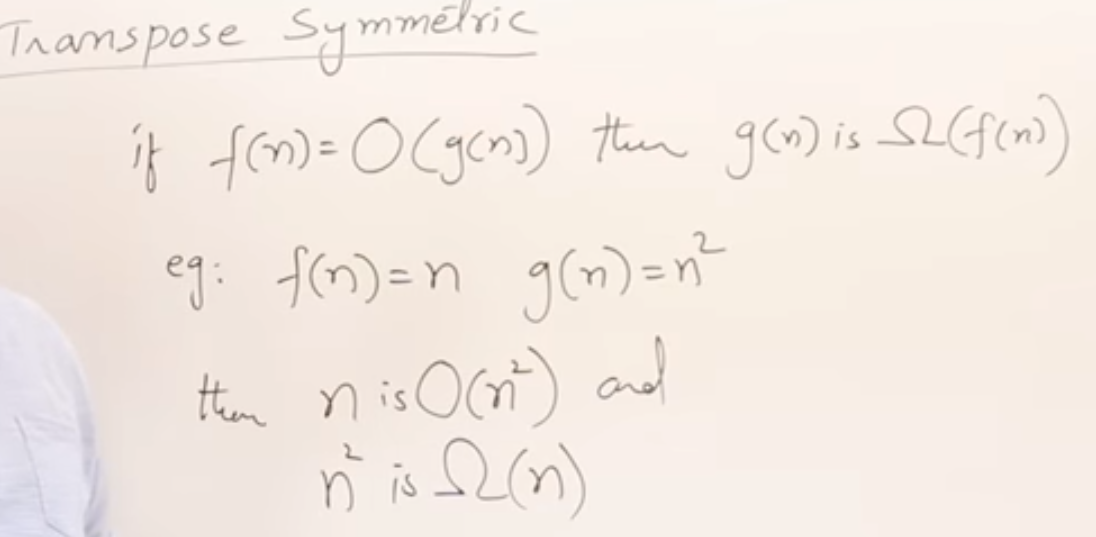 Transpose Symmetric
if f(n)=O(g(n)) then g(n) is Ω(f(n))
eg: f(n)=n g(n)=n²
then n is O(n²) and
n² is Ω(n)